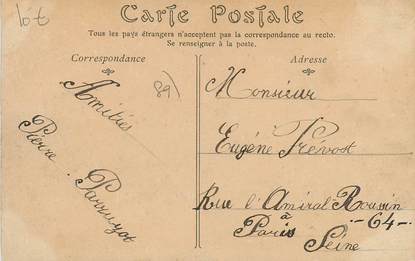 10t
Carte Postale
Tous les pays étrangers n'acceptent pas la correspondance au recto.
Se renseigner à la poste.
Correspondance
Adresse
89)
Amitiés
Pierre Parruzot
Monsieur
Eugéne Prévost
Rue l'Amiral-Roussin
-64-
à
Paris
Seine